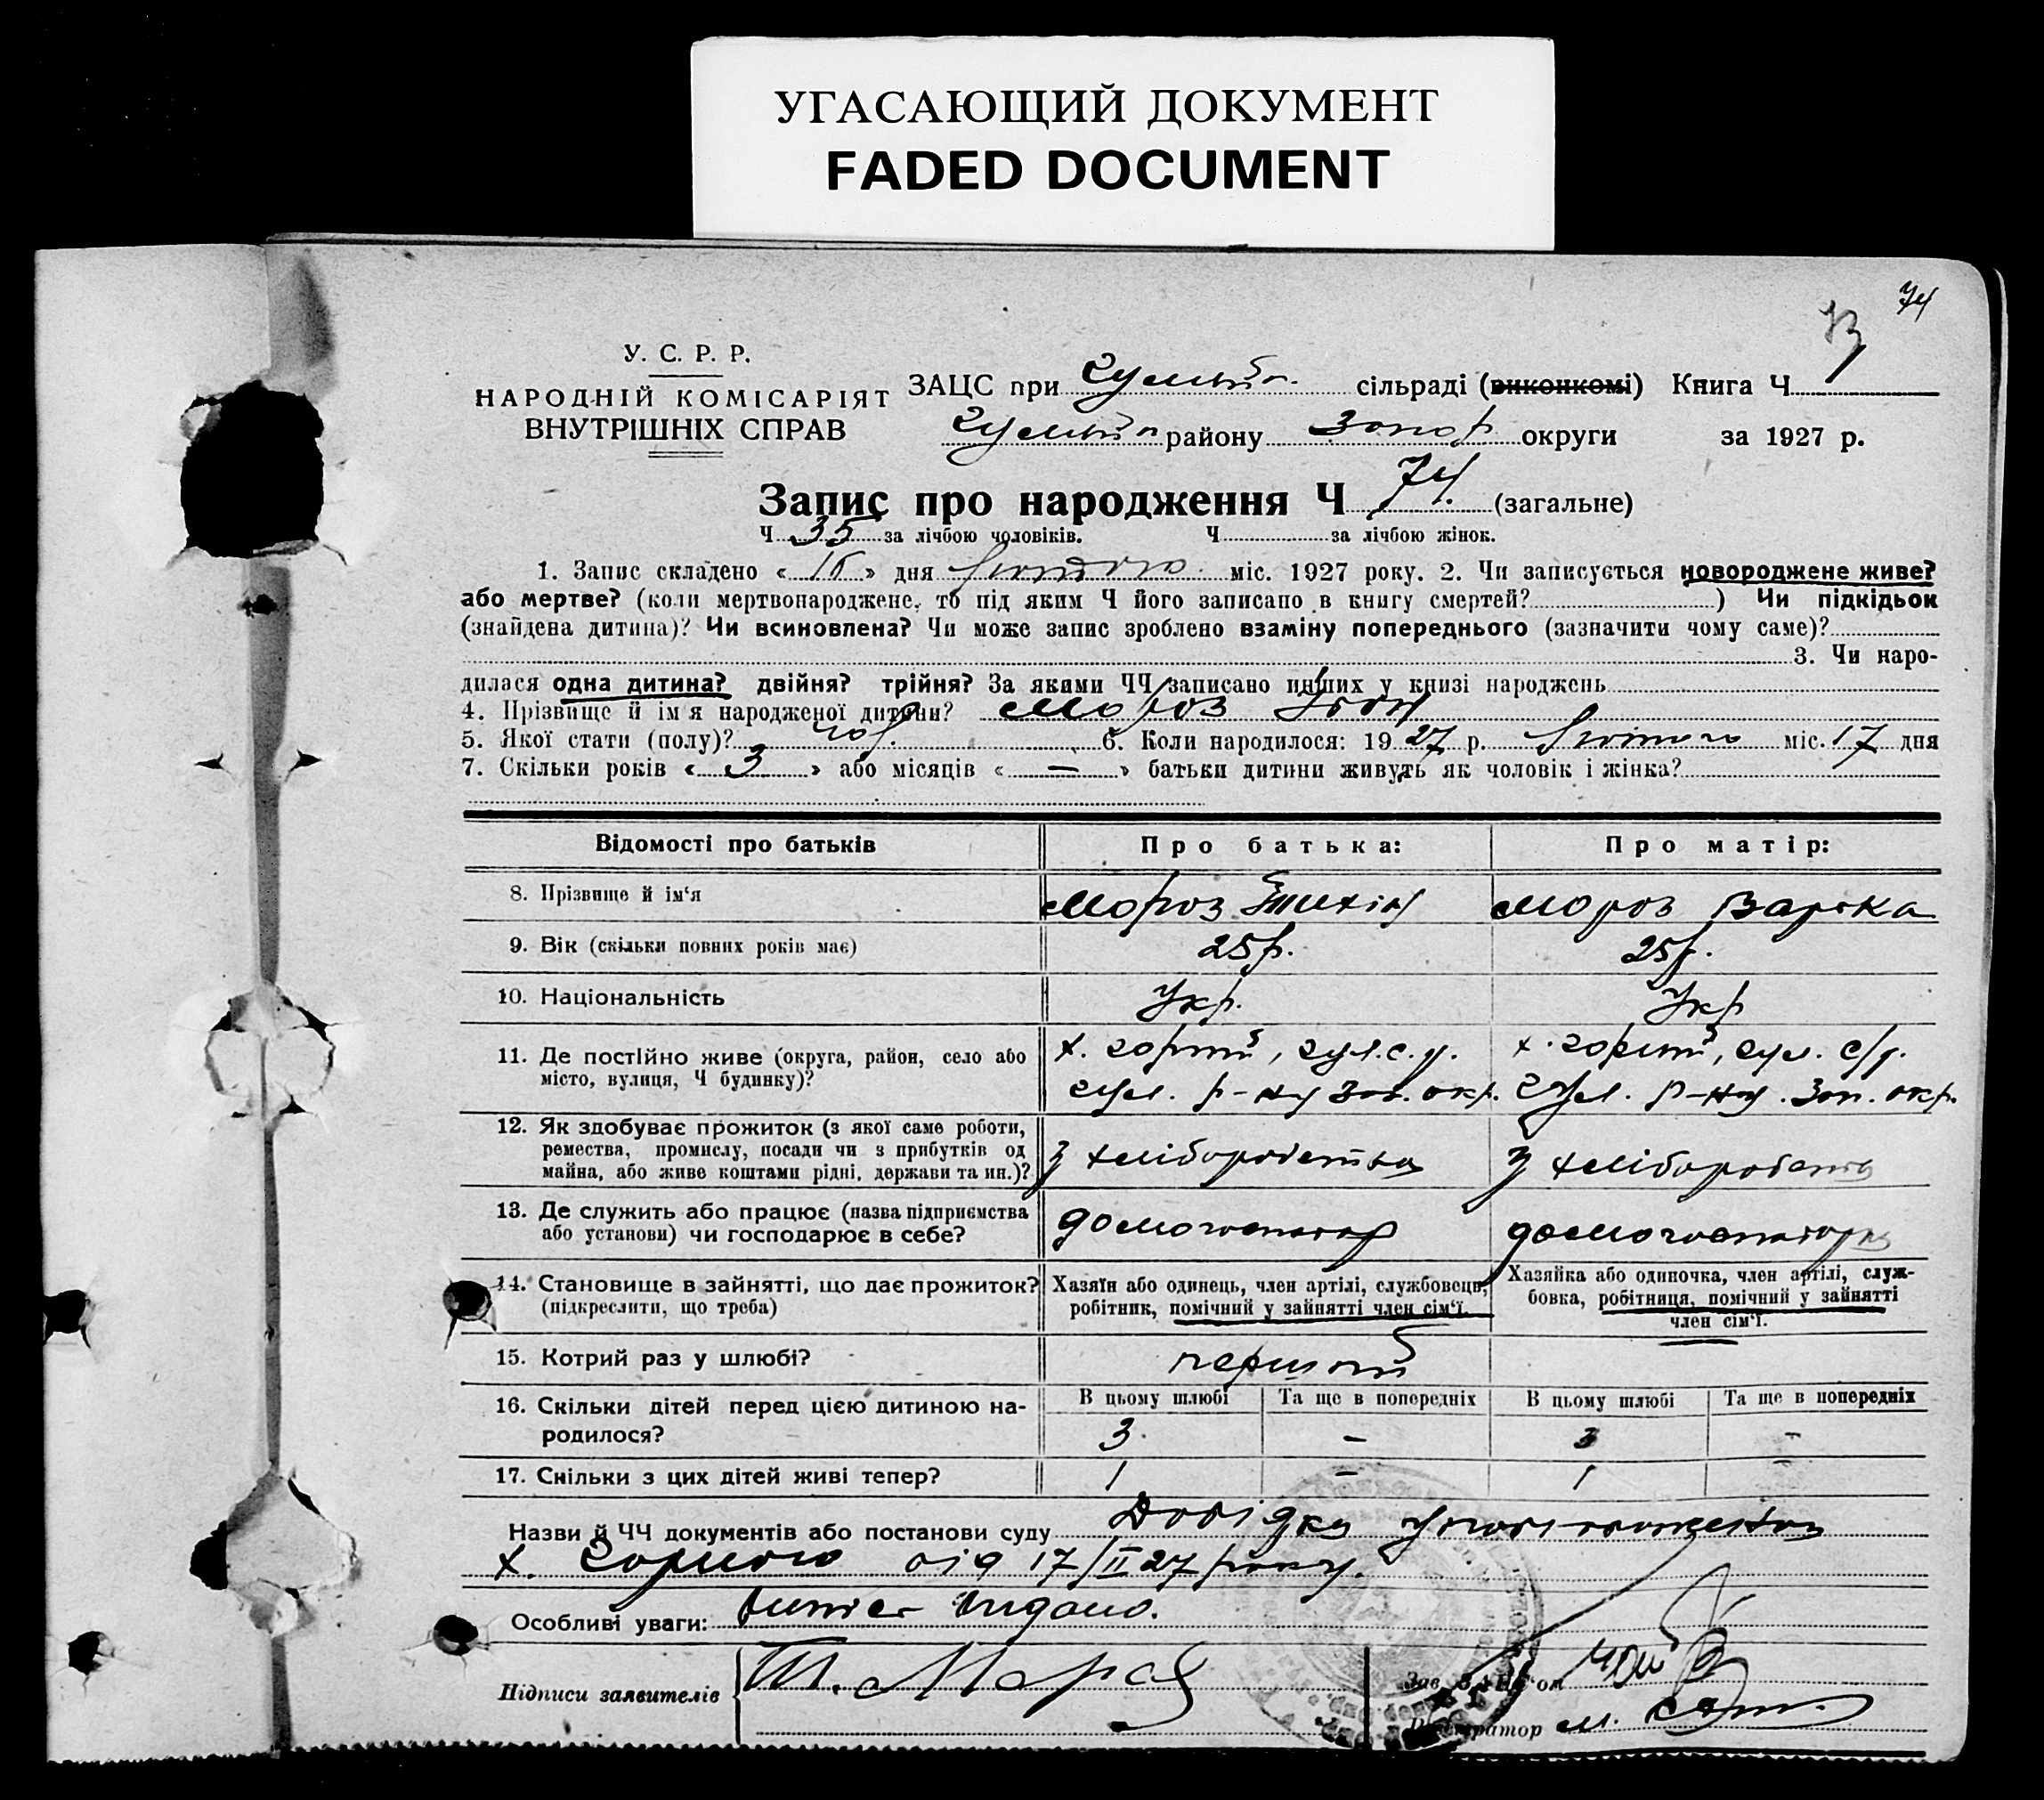 УГАСАЮЩИЙ ДОКУМЕНТ
FADED DOCUMENT
74
73
У. С. Р. Р.
НАРОДНІЙ КОМІСАРІЯТ
ВНУТРІШНІХ СПРАВ
ЗАЦС при сільраді (виконкомі) Книга Ч
району Запор округи за 1927 р.
Запис про народження Ч 74. (загальне)
Ч 35 за лічбою чоловіків. Ч за лічбою жінок.
1. Запис складено « » дня міс. 1927 року. 2. Чи записується новороджене живе?
або мертве? (коли мертвонароджене, то під яким Ч його записано в книгу смертей? ) Чи підкідьок
(знайдена дитина)? Чи всиновлена? Чи може запис зроблено взаміну попереднього (зазначити чому саме)?
3. Чи наро-
дилася одна дитина? двійня? трійня? За якими ЧЧ записано инших у книзі народжень
4. Прізвище й ім'я народженої дитини? Мороз
5. Якої стати (полу)? чол. 6. Коли народилося: 1927 р. міс. 17 дня
7. Скільки років « 3 » або місяців « — » батьки дитини живуть як чоловік і жінка?
Відомості про батьків Про батька: Про матір:
8. Прізвище й ім'я Мороз Мороз Варька
9. Вік (скільки повних років має) 25 р. 25 р.
10. Національність Укр. Укр
11. Де постійно живе (округа, район, село або місто, вулиця, Ч будинку)? х. , гул. с. р. р-ну Зап. окр. х. , гул. с/р. Гул. р-ну. Зап. окр.
12. Як здобуває прожиток (з якої саме роботи, ремества, промислу, посади чи з прибутків од майна, або живе коштами рідні, держави та ин.)? З хліборобства З хліборобства
13. Де служить або працює (назва підприємства або установи) чи господарює в себе? домогосподар домогосподарка
14. Становище в зайнятті, що дає прожиток? (підкреслити, що треба) Хазяїн або одинець, член артілі, службовець, робітник, помічний у зайнятті член сім'ї. Хазяйка або одиночка, член артілі, служ-бовка, робітниця, помічний у зайнятті член сім'ї.
15. Котрий раз у шлюбі? перший
16. Скільки дітей перед цією дитиною на-родилося? В цьому шлюбі 3 Та ще в попередніх – В цьому шлюбі 3 Та ще в попередніх –
17. Скільки з цих дітей живі тепер? 1 – 1 –
Назви й ЧЧ документів або постанови суду Довідка
х. від 17/II 27 року.
Особливі уваги: видано.
Підписи заявителів Т. Мороз Зав. ЗАЦС'ом
Реєстратор М.